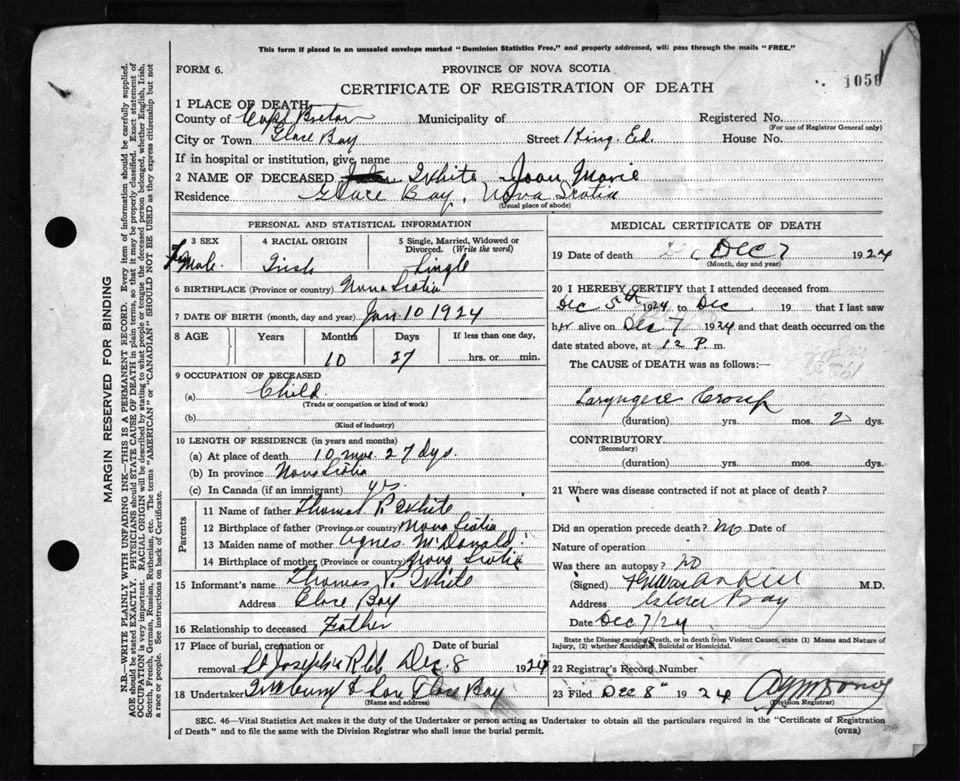 This form if placed in an unsealed envelope marked "Dominion Statistics Free," and properly addressed, will pass through the mails "FREE."
FORM 6.
PROVINCE OF NOVA SCOTIA
1050
CERTIFICATE OF REGISTRATION OF DEATH
1 PLACE OF DEATH
County of Cape Breton Municipality of Registered No.
(For use of Registrar General only)
City or Town Glace Bay Street King Ed. House No.
If in hospital or institution, give name
2 NAME OF DECEASED White Joan Marie
Residence Glace Bay, Nova Scotia
(Usual place of abode)
PERSONAL AND STATISTICAL INFORMATION
3 SEX 4 RACIAL ORIGIN 5 Single, Married, Widowed or Divorced. (Write the word)
FeMale. Irish Single
6 BIRTHPLACE (Province or country) Nova Scotia
7 DATE OF BIRTH (month, day and year) Jan 10 1924
8 AGE Years Months Days If less than one day,
10 27 hrs. or min.
9 OCCUPATION OF DECEASED
(a) Child.
(Trade or occupation or kind of work)
(b)
(Kind of industry)
10 LENGTH OF RESIDENCE (in years and months)
(a) At place of death 10 mos. 27 dys.
(b) In province Nova Scotia
(c) In Canada (if an immigrant) yrs.
Parents
11 Name of father Thomas P. White
12 Birthplace of father (Province or country) Nova Scotia
13 Maiden name of mother Agnes McDonald.
14 Birthplace of mother (Province or country) Nova Scotia
15 Informant's name Thomas P. White
Address Glace Bay
16 Relationship to deceased Father
17 Place of burial, cremation or Date of burial
removal St Joseph's Dec. 8 1924
18 Undertaker & Son Glace Bay
(Name and address)
MEDICAL CERTIFICATE OF DEATH
19 Date of death Dec 7 1924
(Month, day and year)
20 I HEREBY CERTIFY that I attended deceased from
Dec 5th 1924 to Dec 19 that I last saw
her alive on Dec 7 1924 and that death occurred on the
date stated above, at 12 P. m.
The CAUSE OF DEATH was as follows:—
Croup
(duration) yrs. mos. 2 dys.
CONTRIBUTORY
(Secondary)
(duration) yrs. mos. dys.
21 Where was disease contracted if not at place of death?
Did an operation precede death? No Date of
Nature of operation
Was there an autopsy? NO
(Signed) M.D.
Address Glace Bay
Date Dec 7/24
State the Disease causing Death, or in death from Violent Causes, state (1) Means and Nature of Injury, (2) whether Accidental, Suicidal or Homicidal.
22 Registrar's Record Number
23 Filed Dec 8" 1924
(Division Registrar)
SEC. 46—Vital Statistics Act makes it the duty of the Undertaker or person acting as Undertaker to obtain all the particulars required in the "Certificate of Registration
of Death" and to file the same with the Division Registrar who shall issue the burial permit.
(OVER)
MARGIN RESERVED FOR BINDING
N.B.—WRITE PLAINLY WITH UNFADING INK—THIS IS A PERMANENT RECORD. Every item of information should be carefully supplied.
AGE should be stated EXACTLY. PHYSICIANS should STATE CAUSE OF DEATH in plain terms, so that it may be properly classified. Exact statement of
OCCUPATION is very important. RACIAL ORIGIN will be described by stating to what people or tongue the deceased person belonged, whether English, Irish,
Scotch, French, German, Russian, Ruthenian, etc. The terms "AMERICAN" or "CANADIAN" SHOULD NOT BE USED as they express citizenship but not
a race or people. See instructions on back of Certificate.